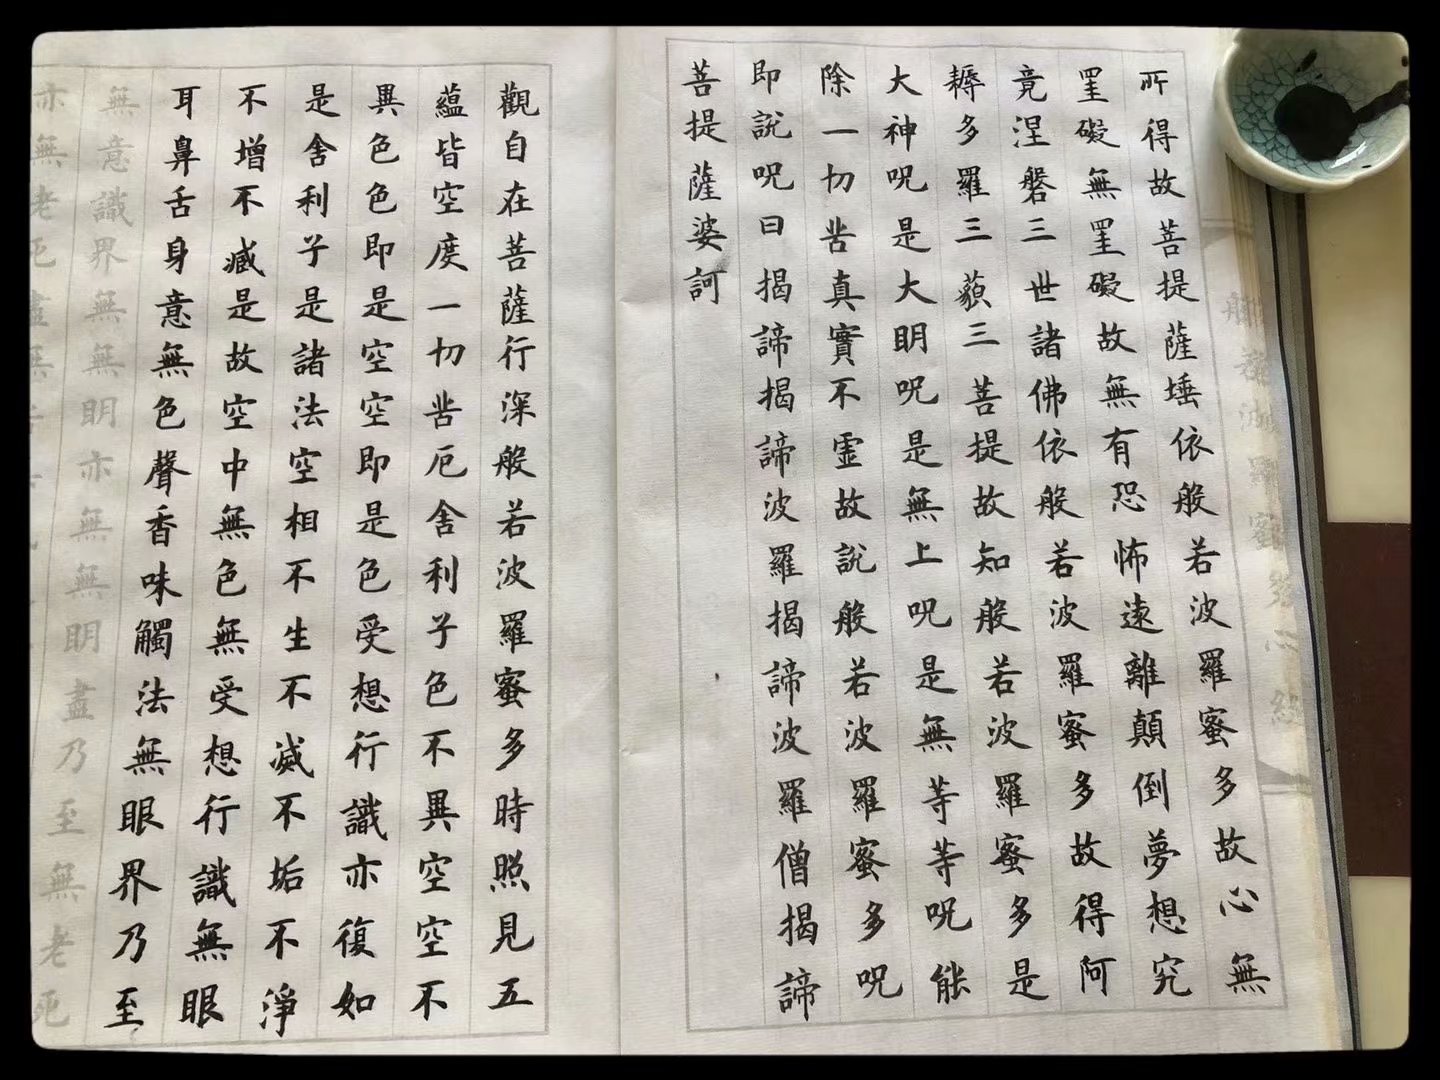 般若波羅蜜多心經
所得故菩提薩埵依般若波羅蜜多故心無
罣礙無罣礙故無有恐怖遠離顛倒夢想究
竟涅槃三世諸佛依般若波羅蜜多故得阿
耨多羅三藐三菩提故知般若波羅蜜多是
大神呪是大明呪是無上呪是無等等呪能
除一切苦真實不虛故說般若波羅蜜多呪
即說呪曰揭諦揭諦波羅揭諦波羅僧揭諦
菩提薩婆訶
觀自在菩薩行深般若波羅蜜多時照見五
蘊皆空度一切苦厄舍利子色不異空空不
異色色即是空空即是色受想行識亦復如
是舍利子是諸法空相不生不滅不垢不淨
不增不減是故空中無色無受想行識無眼
耳鼻舌身意無色聲香味觸法無眼界乃至
無意識界無無明亦無無明盡乃至無老死
亦無老死盡無